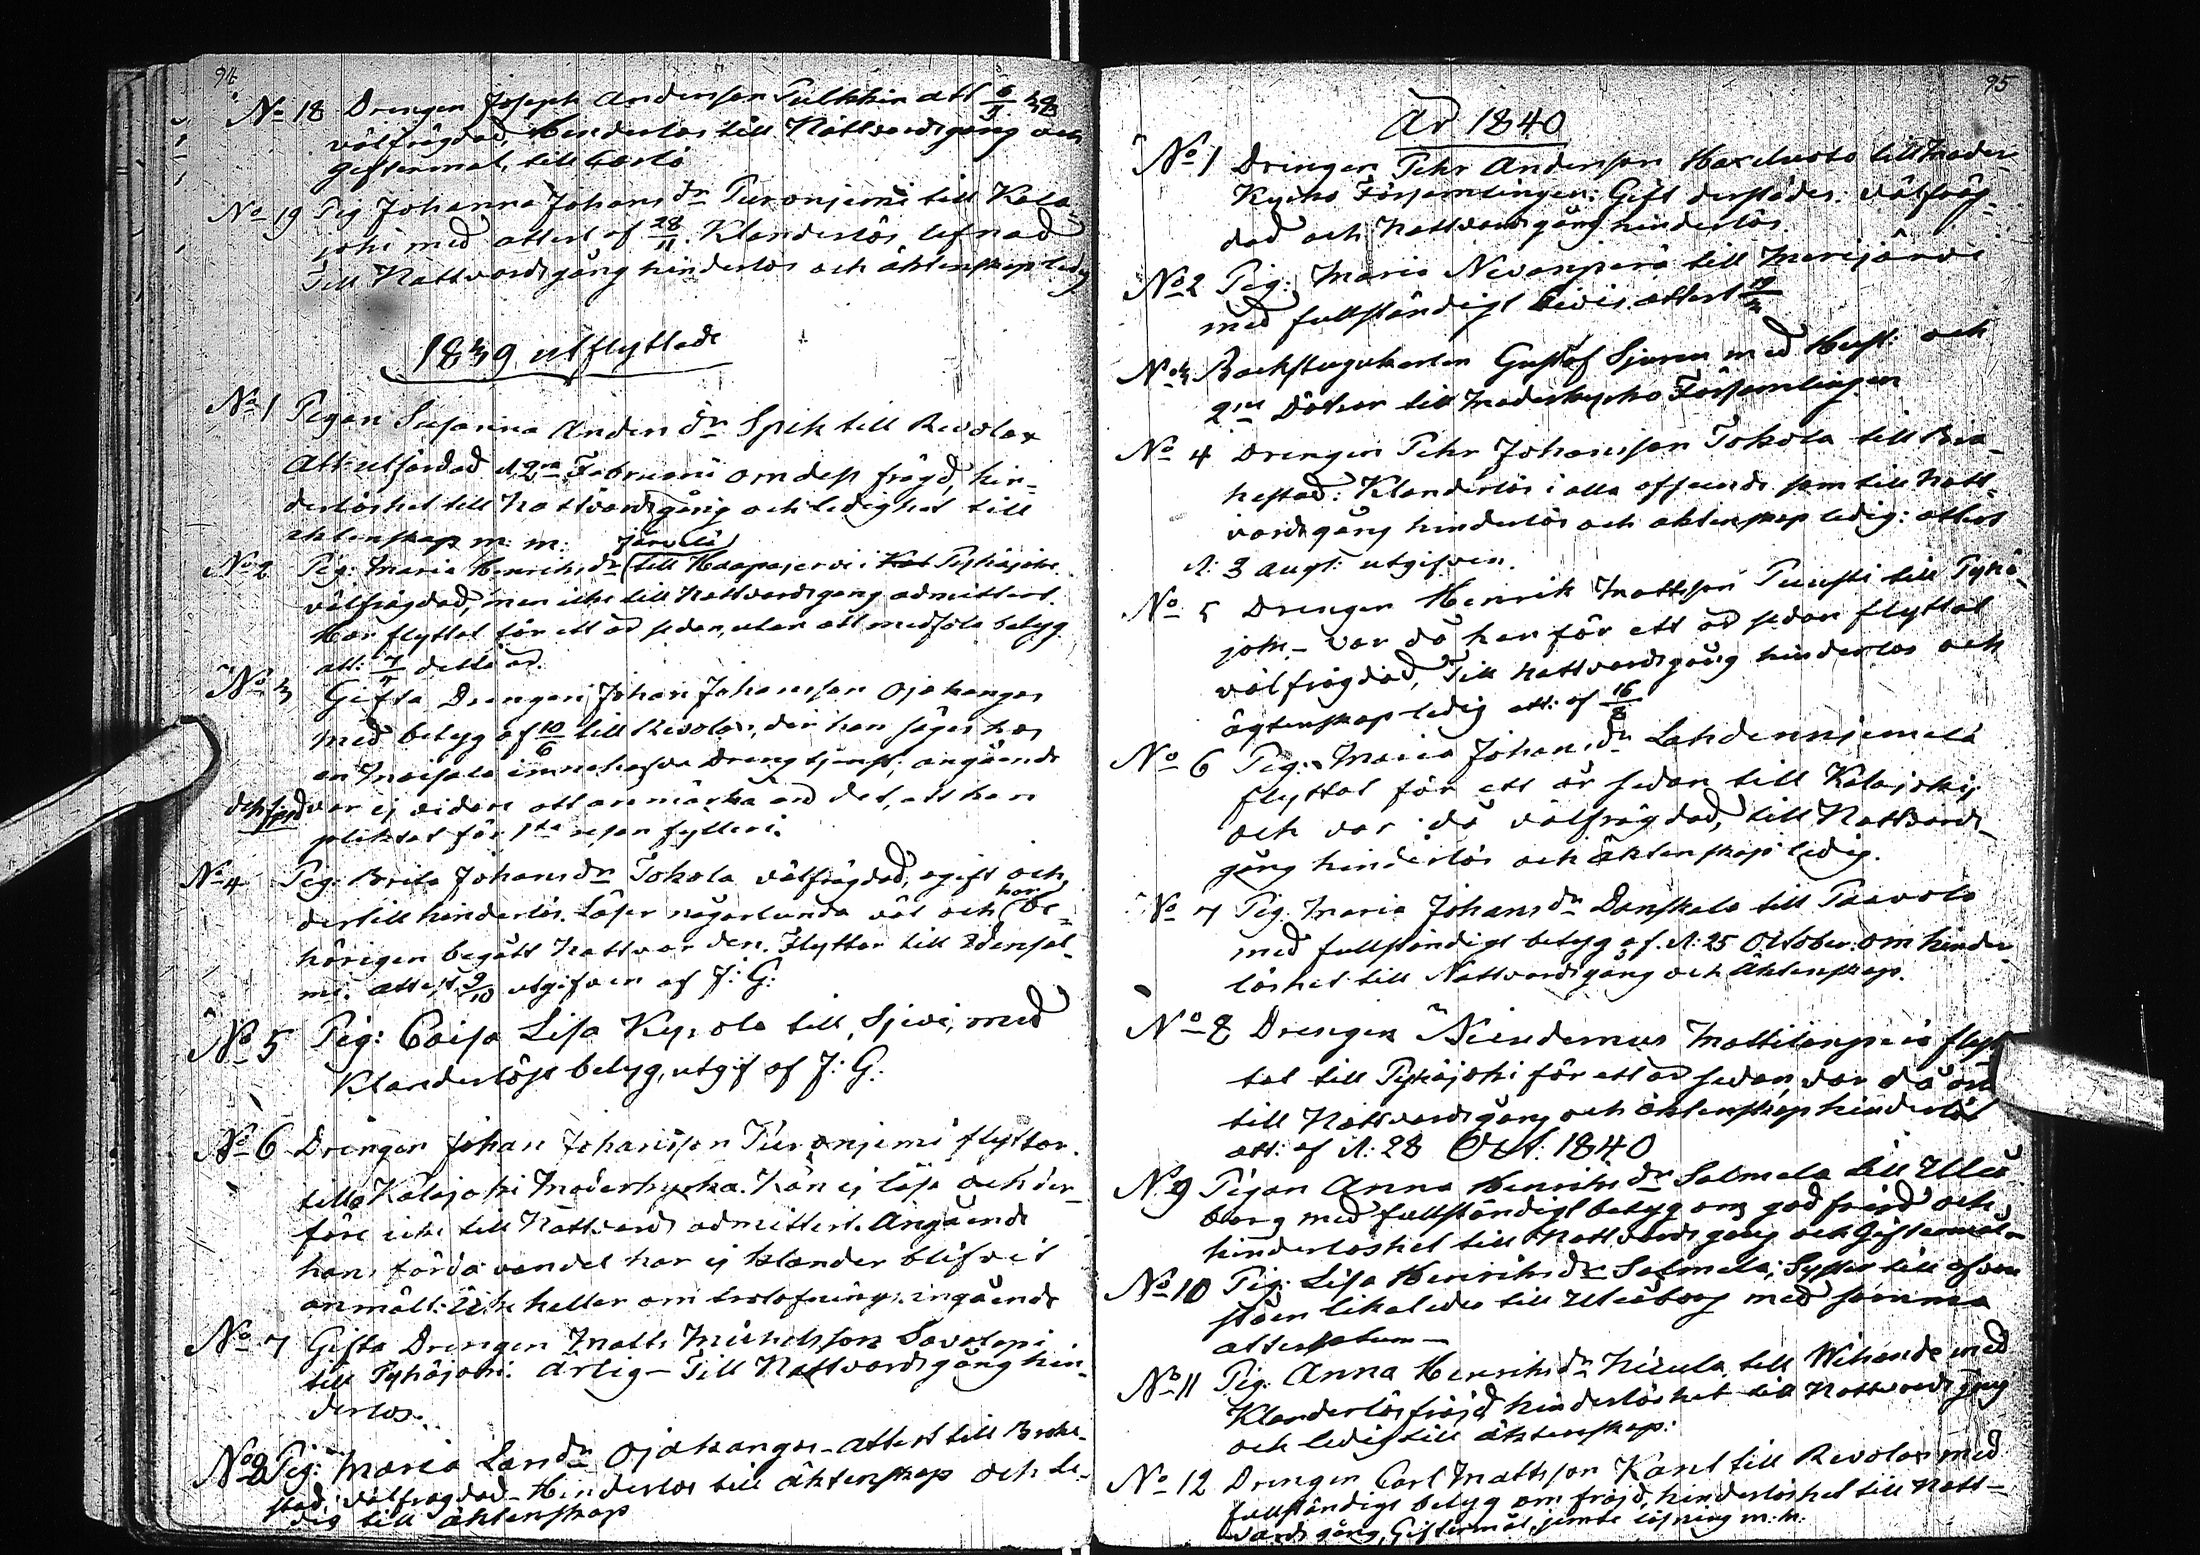 94
No 18 Drengen Joseph Andersson Pulkkin att 6/9 38
välfrägdad, hinderlös till Nattvardsgång och
giftermål, till Carlö
No 19 Pig Johanna Johans dr Turonjemi till Kala-
joki med attest af 28/11. Klanderlös lefnad
Till Nattvardsgång hinderlös och äktenskap ledig
1839 utflyttade
No 1 Pigan Susanna Anders dr Spik till Revolax
Att: utfärdad d. 2ra Februarii om dess frägd, hin-
derlöshet till Nattvardsgång och ledighet till
äktenskap m. m:
No 2 Pig: Maria Henriks dr till Haapajervi i Pyhäjoki
välfrägdad, men icke till Nattvardsgång admitterd.
Har flyttat för ett år sedan, utan att medföla betyg
att: detta år.
No 3 Gifta Drengen Johan Johansson Ojakangas
med betyg af 10/6 till Revolax, der han säges hos
en innehafva Drengtjenst; angående
dess fräjd var ej vidare att anmärka än det, att han
pliktat för 1sta resan fylleri.
No 4 Pig: Brita Johans dr Tokola välfrägdad, ogift och
dertill hinderlös. Läser någorlunda väl och har be-
hörigen begått Nattvarden. Flyttar till Idensal-
mi. attest 9/10 utgifven af J: G:
No 5 Pig: Caisa Lisa Kyrola till Sievi, med
Klanderlöst betyg, utgif af J: G:
No 6 Drengen Johan Johansson Turonjemi flyttar
till Kalajoki Moderkyrka. Kan ej läsa och der-
före icke till Nattvard admitterd. Angående
hans förda vandel har ej klander blifvit
anmält: icke heller om trolofnings ingående
No 7 Gifta Drengen Matts Michelsson Savolapi
till Pyhäjoki. ärlig - Till Nattvardsgång hin-
derlös.
No 8 Pig: Maria Lars dr Ojakangas - attest till Brahe-
stad, välfrägdad - Hinderlös till äktenskap och le-
dig till äktenskap
95
År 1840
No 1 Drengen Pehr Andersson till Moder-
Kyrko Församlingen: Gift derstädes: välfräg-
dad och Nattvardsgång hinderlös.
No 2 Pig: Maria Nevanperä till Merijärvi
med fullständigt bevis. attest
No 3 Backstugukarlen Gustaf Sjuren med Hust: och
2ne Döttrar till Moderkyrko Församlingen
No 4 Drengen Pehr Johansson Tokola till Bra-
hestad: Klanderlös i alla afseende som till Natt-
vardsgång hinderlös och äktenskap ledig: attest
d: 3 Augt: utgifven.
No 5 Drengen Henrik Mattsson Puusti till Pyhä-
joki - var då han för ett år sedan flyttat
välfrägdad, Till Nattvardsgång hinderlös och
ägtenskap ledig att: af 16/8
No 6 Pig: Maria Johans dr Lahdennjemelä
flyttat för ett år sedan till Kalajoki
och var då välfrägdad, till Nattvards-
gång hinderlös och äktenskap ledig.
No 7 Pig. Maria Johans dr Danskala till Paavola
med fullständigt betyg af d: 25 October. om hinder-
löshet till Nattvardsgång och äktenskap.
No 8 Drengen Nicudemus Mattilanperä flyt
tat till Pyhäjoki för ett år sedan, var då
till Nattvardsgång och äktenskap hinderlös
att: af d: 28 Oct. 1840
No 9 Pigan Anna Henriks dr Salmela till Uleå
borg med fullständigt betyg om god fräjd och
hinderlöshet till Nattvardsgång och Giftermål
No 10 Pig: Lisa Henriks dr Salmela; Syster till ofvan
stående likaledes till Uleåborg med samma
attestatum -
No 11 Pig. Anna Henriks dr Nicula till Wihande med
Klanderlös fräjd hinderlöshet till Nattvardsgång
och ledig till äktenskap:
No 12 Drengen Carl Mattsson Karel till Revolax med
fullständigt betyg om fräjd, hinderlöshet till Natt-
vardsgång, Giftermål, jemte läsning m. m.